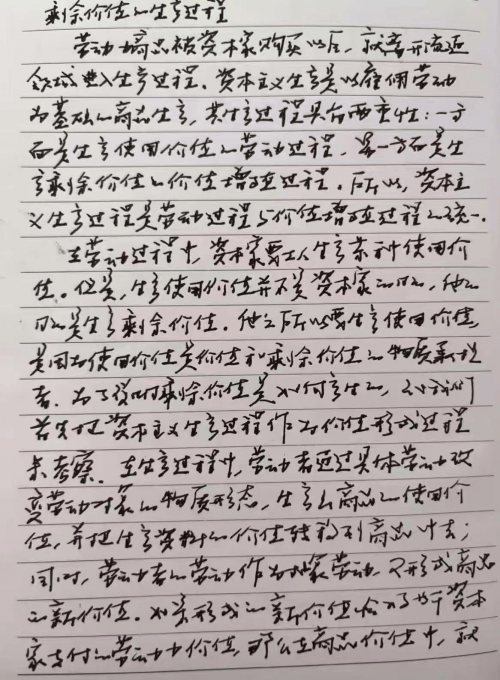 剩余价值的生产过程
劳动力商品被资本家购买以后，就离开流通
领域进入生产过程。资本主义生产是以雇佣劳动
为基础的商品生产，其生产过程具有两重性：一方
面是生产使用价值的劳动过程，另一方面是生
产剩余价值的价值增殖过程。所以，资本主
义生产过程是劳动过程与价值增殖过程的统一。
在劳动过程中，资本家要工人生产某种使用价
值。但是，生产使用价值并不是资本家的目的，他的
目的是生产剩余价值。他之所以要生产使用价值，
是因为使用价值是价值和剩余价值的物质承担
者。为了说明剩余价值是如何产生的，我们
首先把资本主义生产过程作为价值形成过程
来考察。在生产过程中，劳动者通过具体劳动改
变劳动对象的物质形态，生产出商品的使用价
值，并把生产资料的价值转移到商品中去；
同时，劳动者的劳动作为抽象劳动，又形成商品
的新价值。如果形成的新价值恰好等于资本
家支付的劳动力价值，那么在商品价值中，就